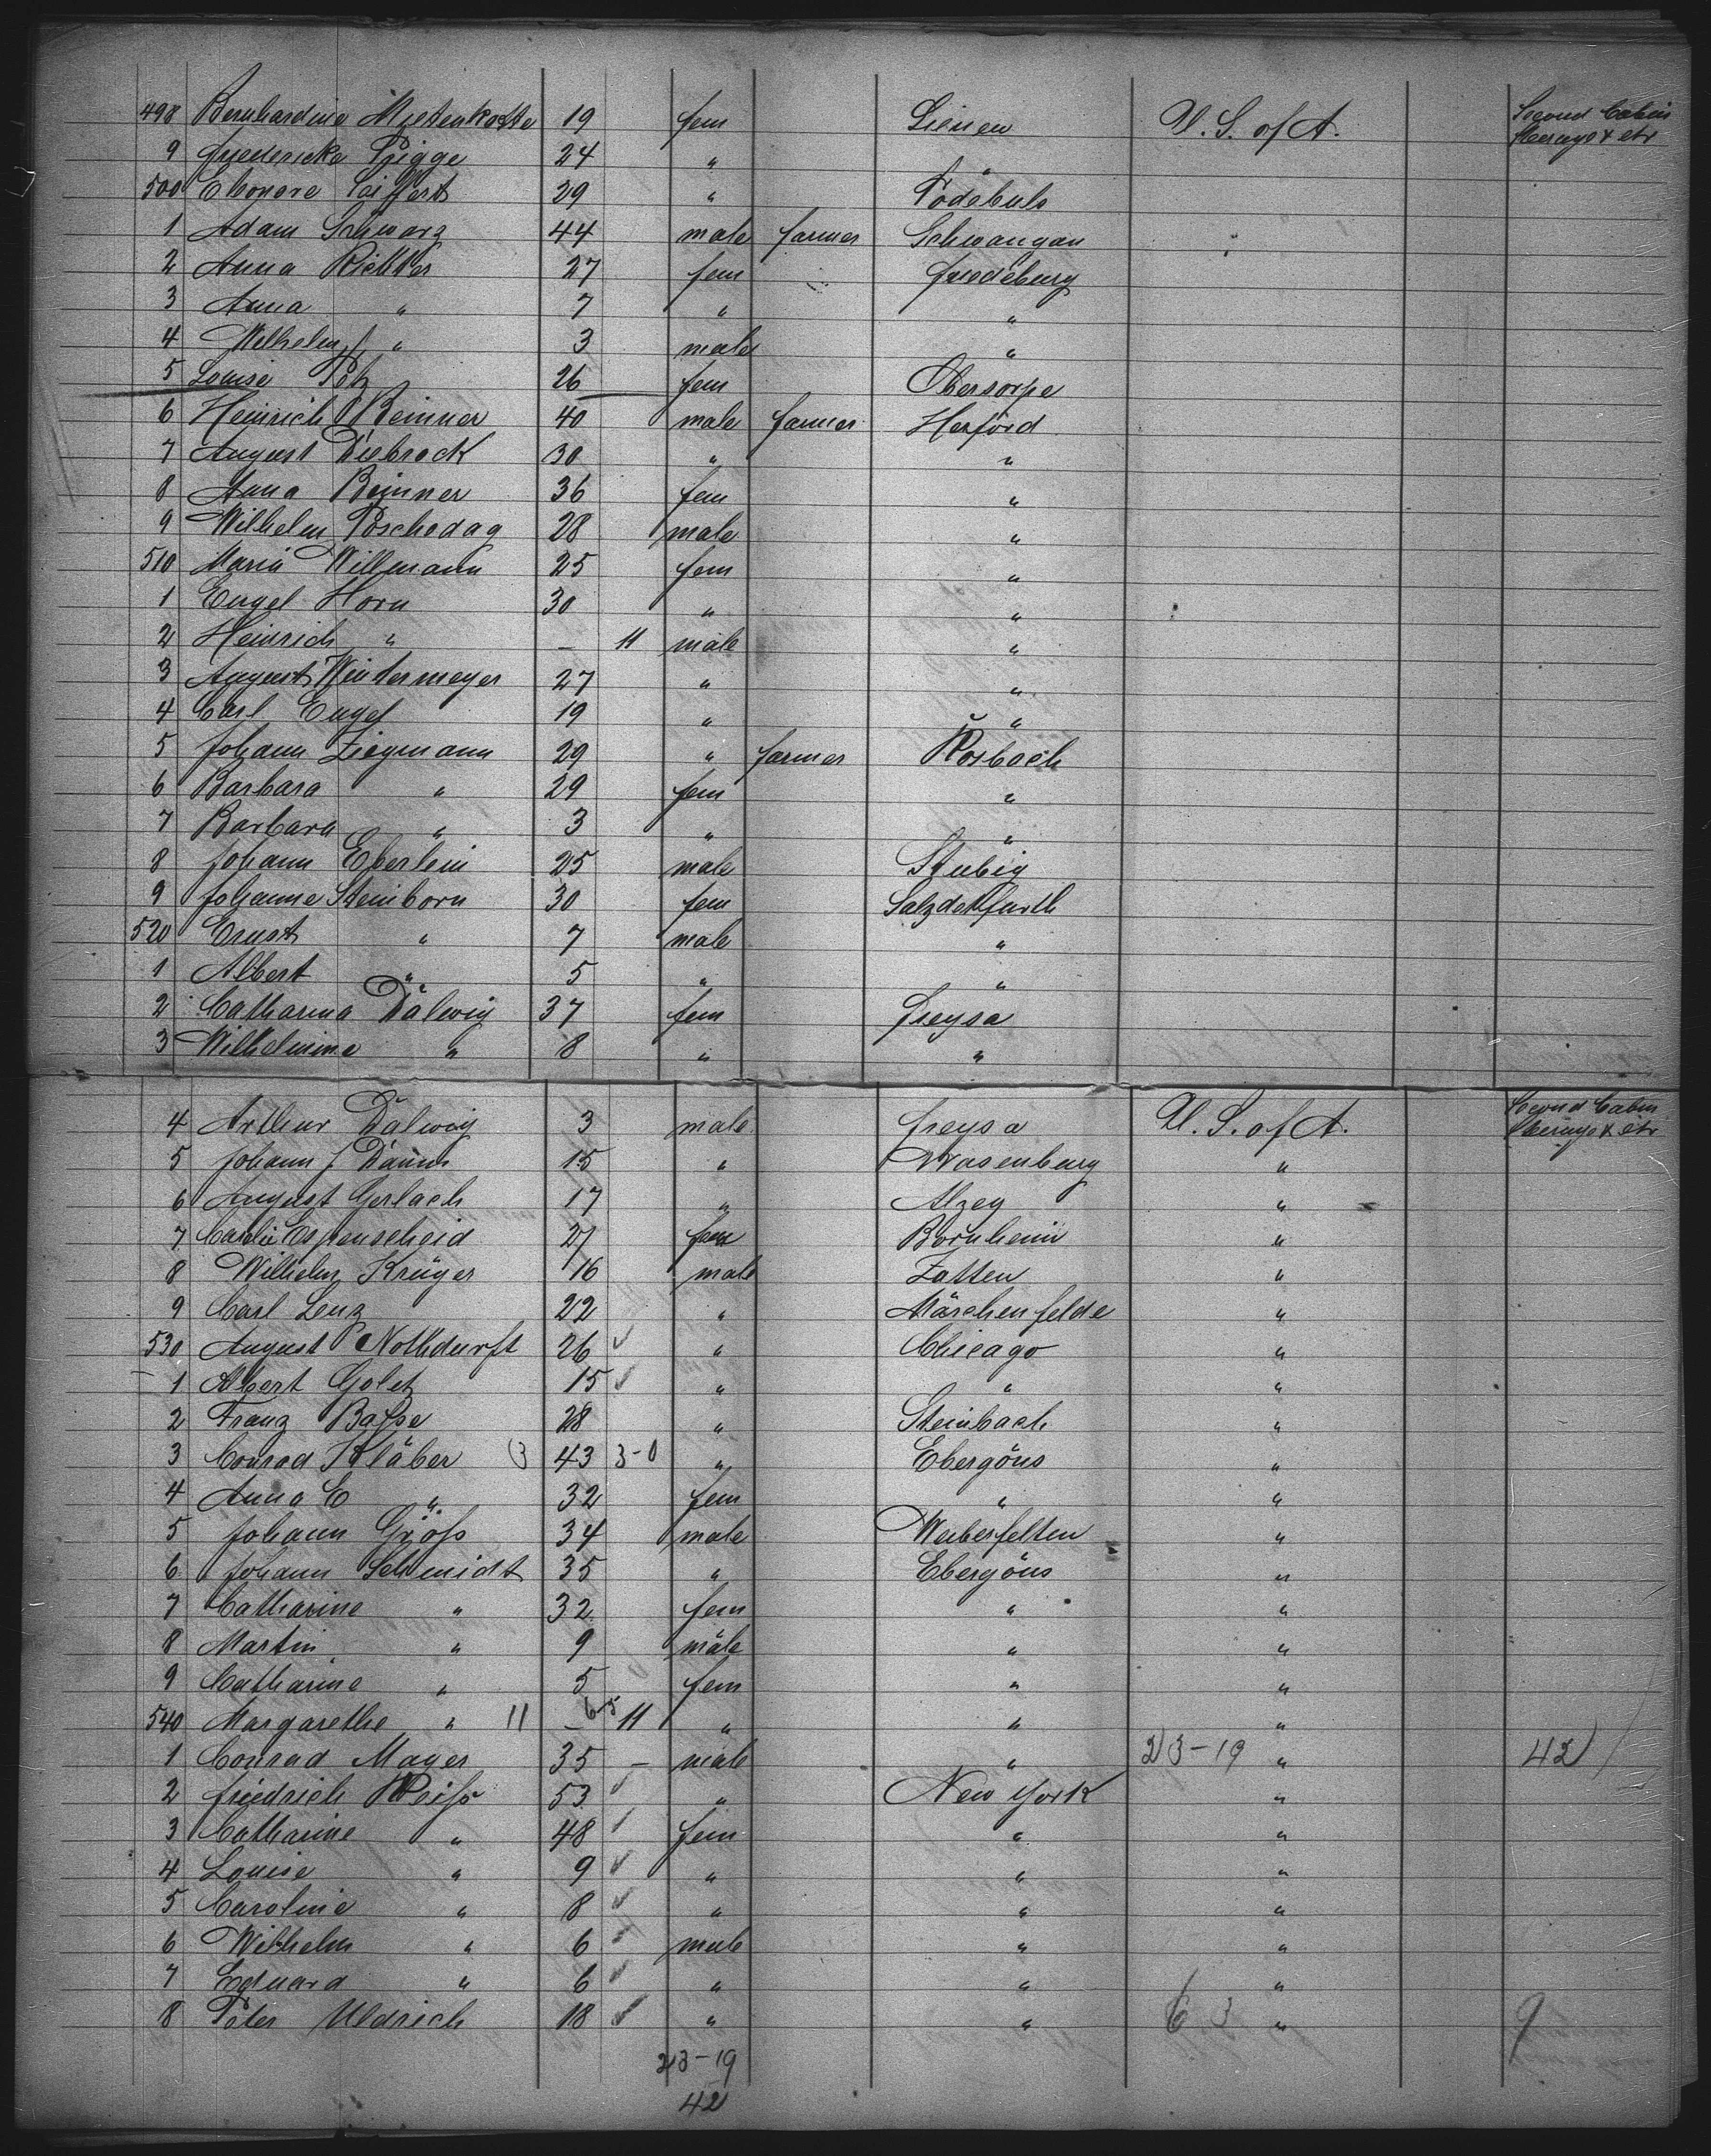 498 Bernhardine Mietenkotte 19 fem Lienen U. S. of A. Second Cabin
9 Friedericke Prigge 24 " "
500 Eleonore Seiffert 29 "
1 Adam Schwarz 44 male farmer Schwangau
2 Anna Richter 27 fem Friedeburg
3 Anna " 7 " "
4 Wilhelm " 3 male "
5 Louise 26 fem Obersorpe
6 Heinrich Beinner 40 male farmer Herford
7 August Diebrock 30 " "
8 Anna Beinner 36 fem "
9 Wilhelm Poschadag 28 male "
510 Maria Willmann 25 fem "
1 Engel Horn 30 " "
2 Heinrich " – 11 male "
3 August Wintermeyer 27 " "
4 Carl Engel 19 " "
5 Johann Ziegmann 29 " farmer Rosbach
6 Barbara " 29 fem "
7 Barbara " 3 " "
8 Johann Eberlein 25 male Stubig
9 Johanne Steinborn 30 fem Salzdetfurth
520 Ernst " 7 male "
1 Albert " 5 " "
2 Catharina Dälwig 37 fem Freysa
3 Wilhelmine " 8 " "
4 Arthur Dalwig 3 male Freysa U. S. of A. Second Cabin
5 Johann J 15 " Wasenburg "
6 August Gerlach 17 " Alzey "
7 Espenscheid 21 fem Bornheim "
8 Wilhelm Krüger 16 male Zatten "
9 Carl Lenz 22 " Märchenfelde "
530 August Nothdurft 26 " Chicago "
1 Albert Goletz 15 " " "
2 Franz Basse 28 " Steinbach "
3 Conrad Kläber 3 43 3-0 " Ebergöns "
4 Anna E " 32 fem " "
5 Johann Gröss 34 male Weiberfelten "
6 Johann Schmidt 35 " Ebergöns "
7 Catharine " 32 fem " "
8 Martin " 9 male " "
9 Catharine " 5 fem " "
540 Margarethe " 11 – 11 " " "
1 Conrad Mayer 35 – male " 23-19 " 42
2 Friedrich Weiss 53 " New York "
3 Catharine " 48 fem " "
4 Louise " 9 " " "
5 Caroline " 8 " " "
6 Wilhelm " 6 male " "
7 Eduard " 6 " " "
8 Peter Uldrich 18 " " 6 3 " 9
23-19
42